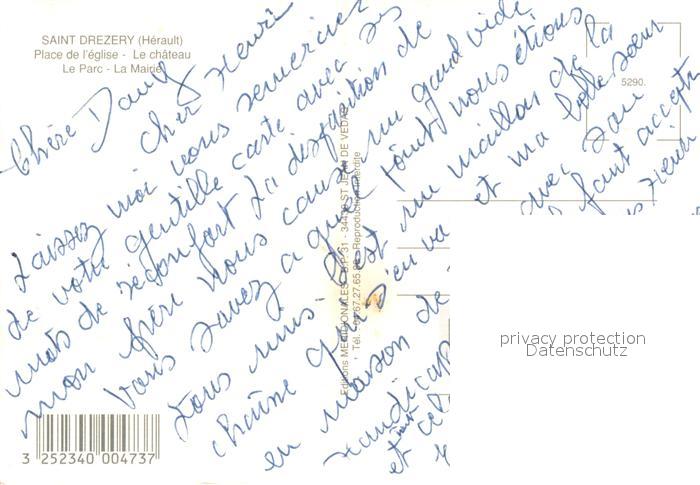 SAINT DREZERY (Hérault)
Place de l'église - Le château
Le Parc - La Mairie
5290.
Chère Dany
Cher Henri
Laissez moi vous remercier
de votre gentille carte avec ses
mots de réconfort La disparition de
mon frère nous cause un grand vide
Vous savez a quel point nous étions
tous unis. C'est un maillon de la
chaîne qui s'en va et ma belle sœur
en maison de avec son
handicap faut accepter
et rien
Editions MERIDIONALES - B.P. 31 - 34430 ST JEAN DE VEDAS
Tél. 04.67.27.65. - Reproduction interdite
3 252340 004737
privacy protection
Datenschutz